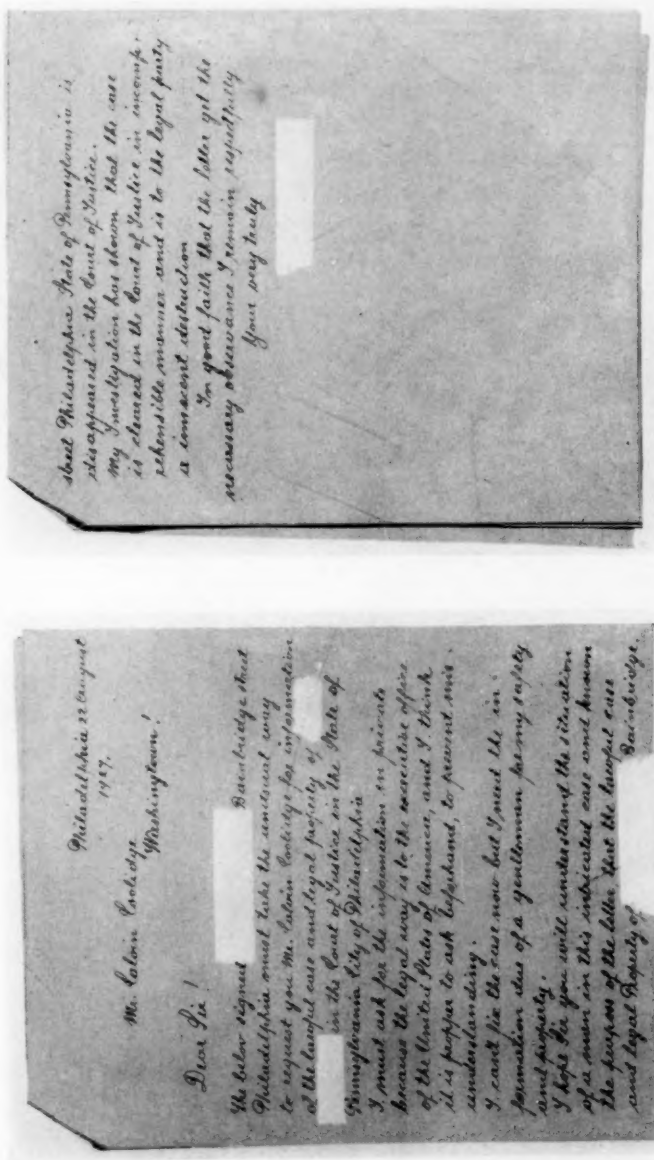 Philadelphia 22 August
1927.
Mr. Calvin Coolidge
Washingtown!
Dear Sir!
The below signed Bainbridge street
Philadelphia must take the unusual way
to request you Mr. Calvin Coolidge for information
of the lawful case and legal property of
in the Court of Justice in the State of
Pennsylvania City of Philadelphia
I must ask for the information in private
because the legal way is to the executive office
of the United States of America, and I think
it is propper to ask beforehand, to prevent mis-
understanding.
I can't fix the case now but I need the in-
formation due of a gentleman for my safety
and property.
I hope Sir you will understand the situation
of a man in this intricated case and known
the purpose of the letter that the lawful case
and legal Property of Bainbridge.
street Philadelphia State of Pennsylvania is
disappeared in the Court of Justice.
My Investigation has shown that the case
is cleared in the Court of Justice in incomp-
rehensible manner and is to the legal party
a innocent destruction
In good faith that the letter get the
necessary observance I remain respectfully
Your very truly